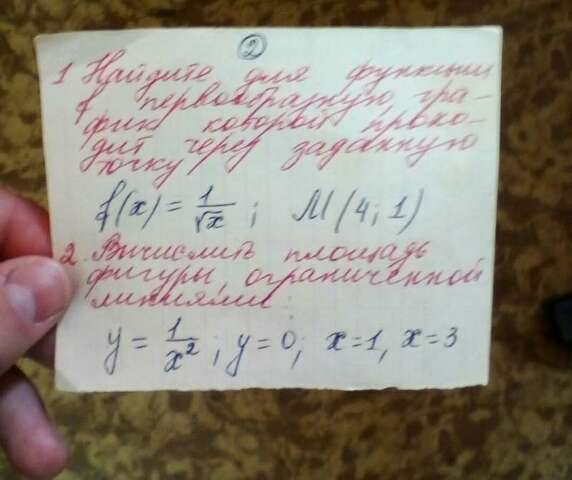 2
1 Найдите для функции
f первообразную, гра-
фик которой прохо-
дит через заданную
точку
f(x) = 1/√x ; M(4; 1)
2. Вычислить площадь
фигуры, ограниченной
линиями:
y = 1/x² ; y = 0; x = 1, x = 3